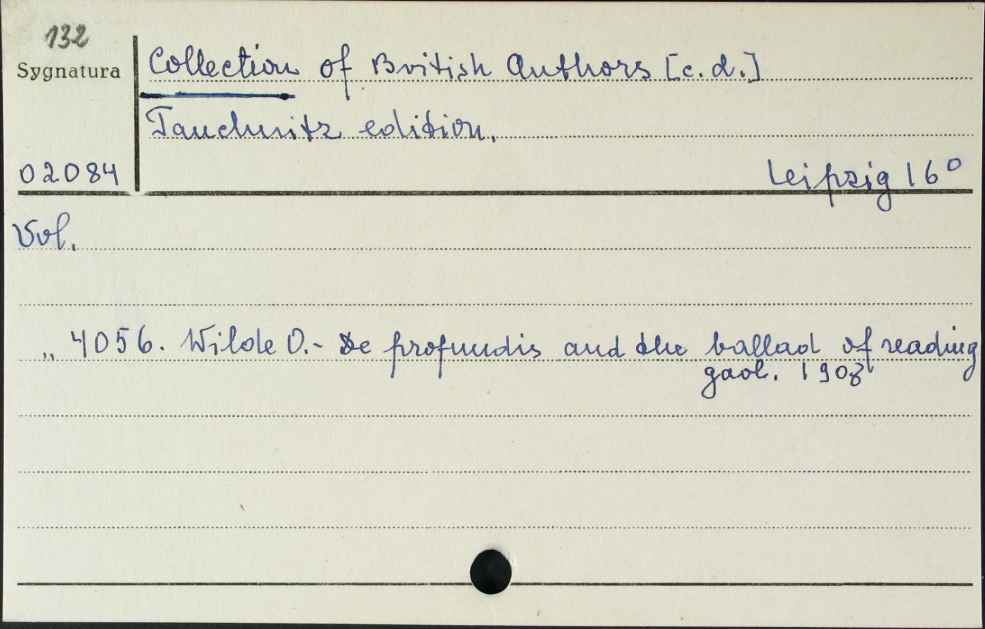 132
Sygnatura
Collection of British Authors [c.d.]
Tauchnitz edition.
02084
Leipzig 16°
Vol.
„ 4056. Wilde O.- De profundis and the ballad of reading
gaol. 1908